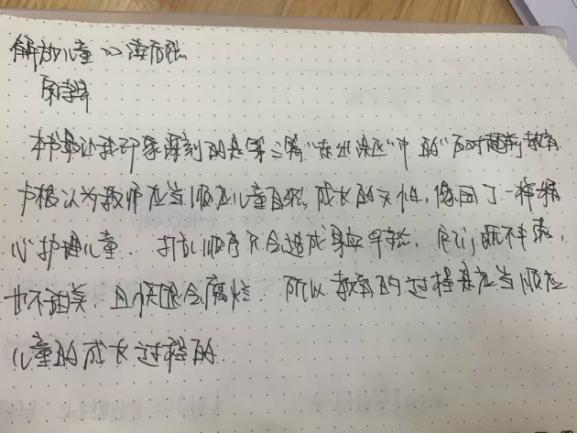 解放儿童》读后感
本书最让我印象深刻的是第三篇“走出误区”中的“反对超前教育
卢梭认为教师应当顺应儿童自然成长的天性,像园丁一样精
心护理儿童.打乱顺序只会造成果实早熟,它们既不丰满,
也不甜美,且很快会腐烂.所以教育的过程是应当顺应
儿童的成长过程的